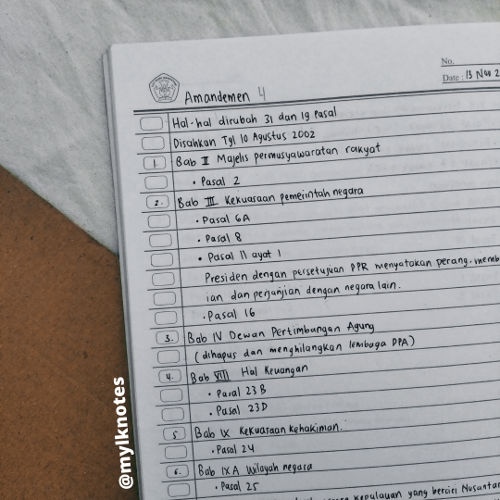 No.
Date : 13 Nov 2
Amandemen 4
Hal-hal dirubah 31 dan 19 Pasal
Disahkan Tgl 10 Agustus 2002
1. Bab II Majelis permusyawaratan rakyat
• Pasal 2
2. Bab III Kekuasaan pemerintah negara
• Pasal 6A
• Pasal 8
• Pasal 11 ayat 1
Presiden dengan persetujuan PPR menyatakan perang, memb
ian dan perjanjian dengan negara lain.
• Pasal 16
3. Bab IV Dewan Pertimbangan Agung
(dihapus dan menghilangkan lembaga DPA)
4. Bab VIII Hal Keuangan
• Pasal 23 B
• Pasal 23D
5 Bab IX Kekuasaan Kehakiman.
• Pasal 24
6. Bab IXA Wilayah negara
• Pasal 25
kepulauan yang berciri Nusantar
@mylknotes